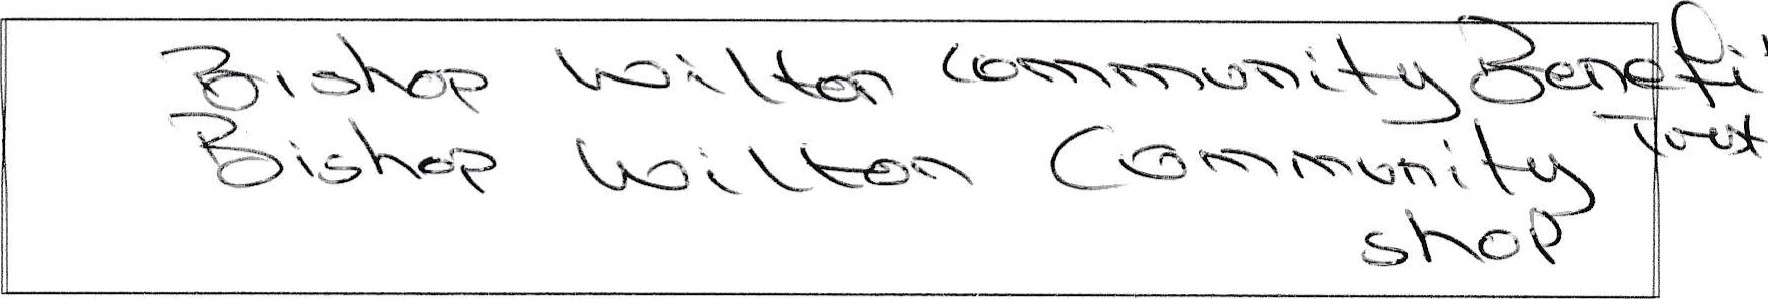 Bishop Wilton Community Benefi
Trust
Bishop Wilton Community
shop